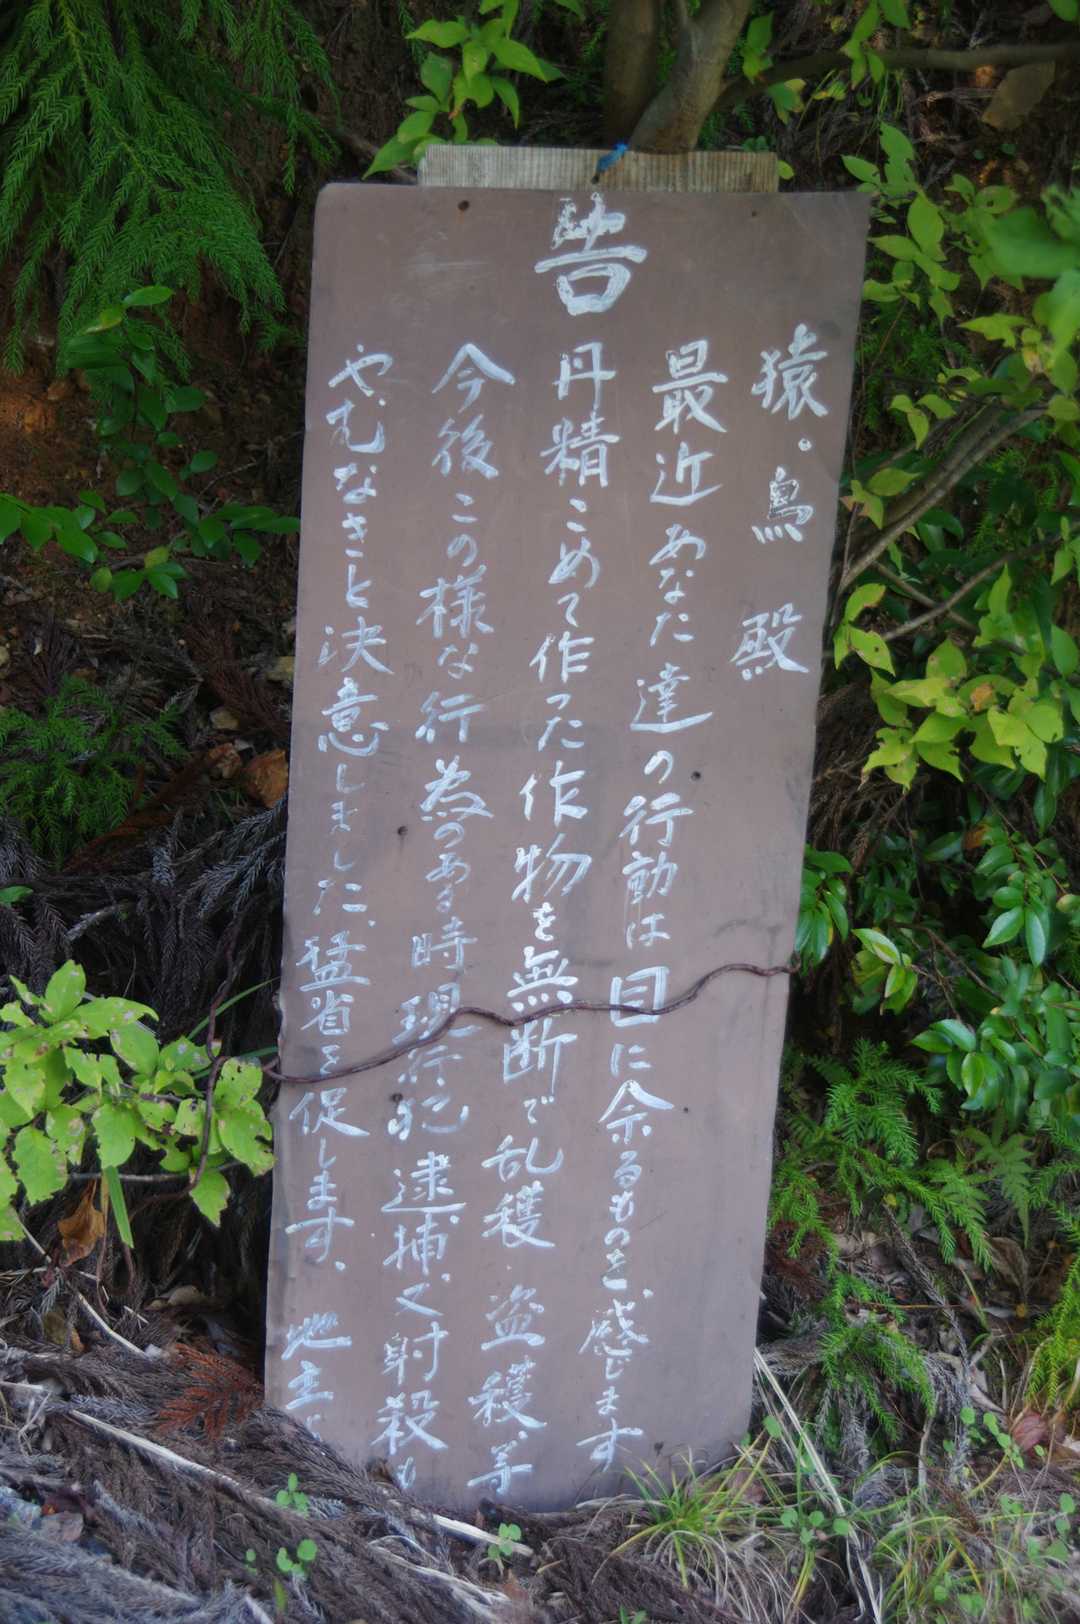 告
猿・鳥 殿
最近あなた達の行動は目に余るものを感じます
丹精こめて作った作物を無断で乱穫・盗穫、等
今後この様な行為のある時現行犯逮捕、又射殺も
やむなきと決意しました、猛省を促します、 地主